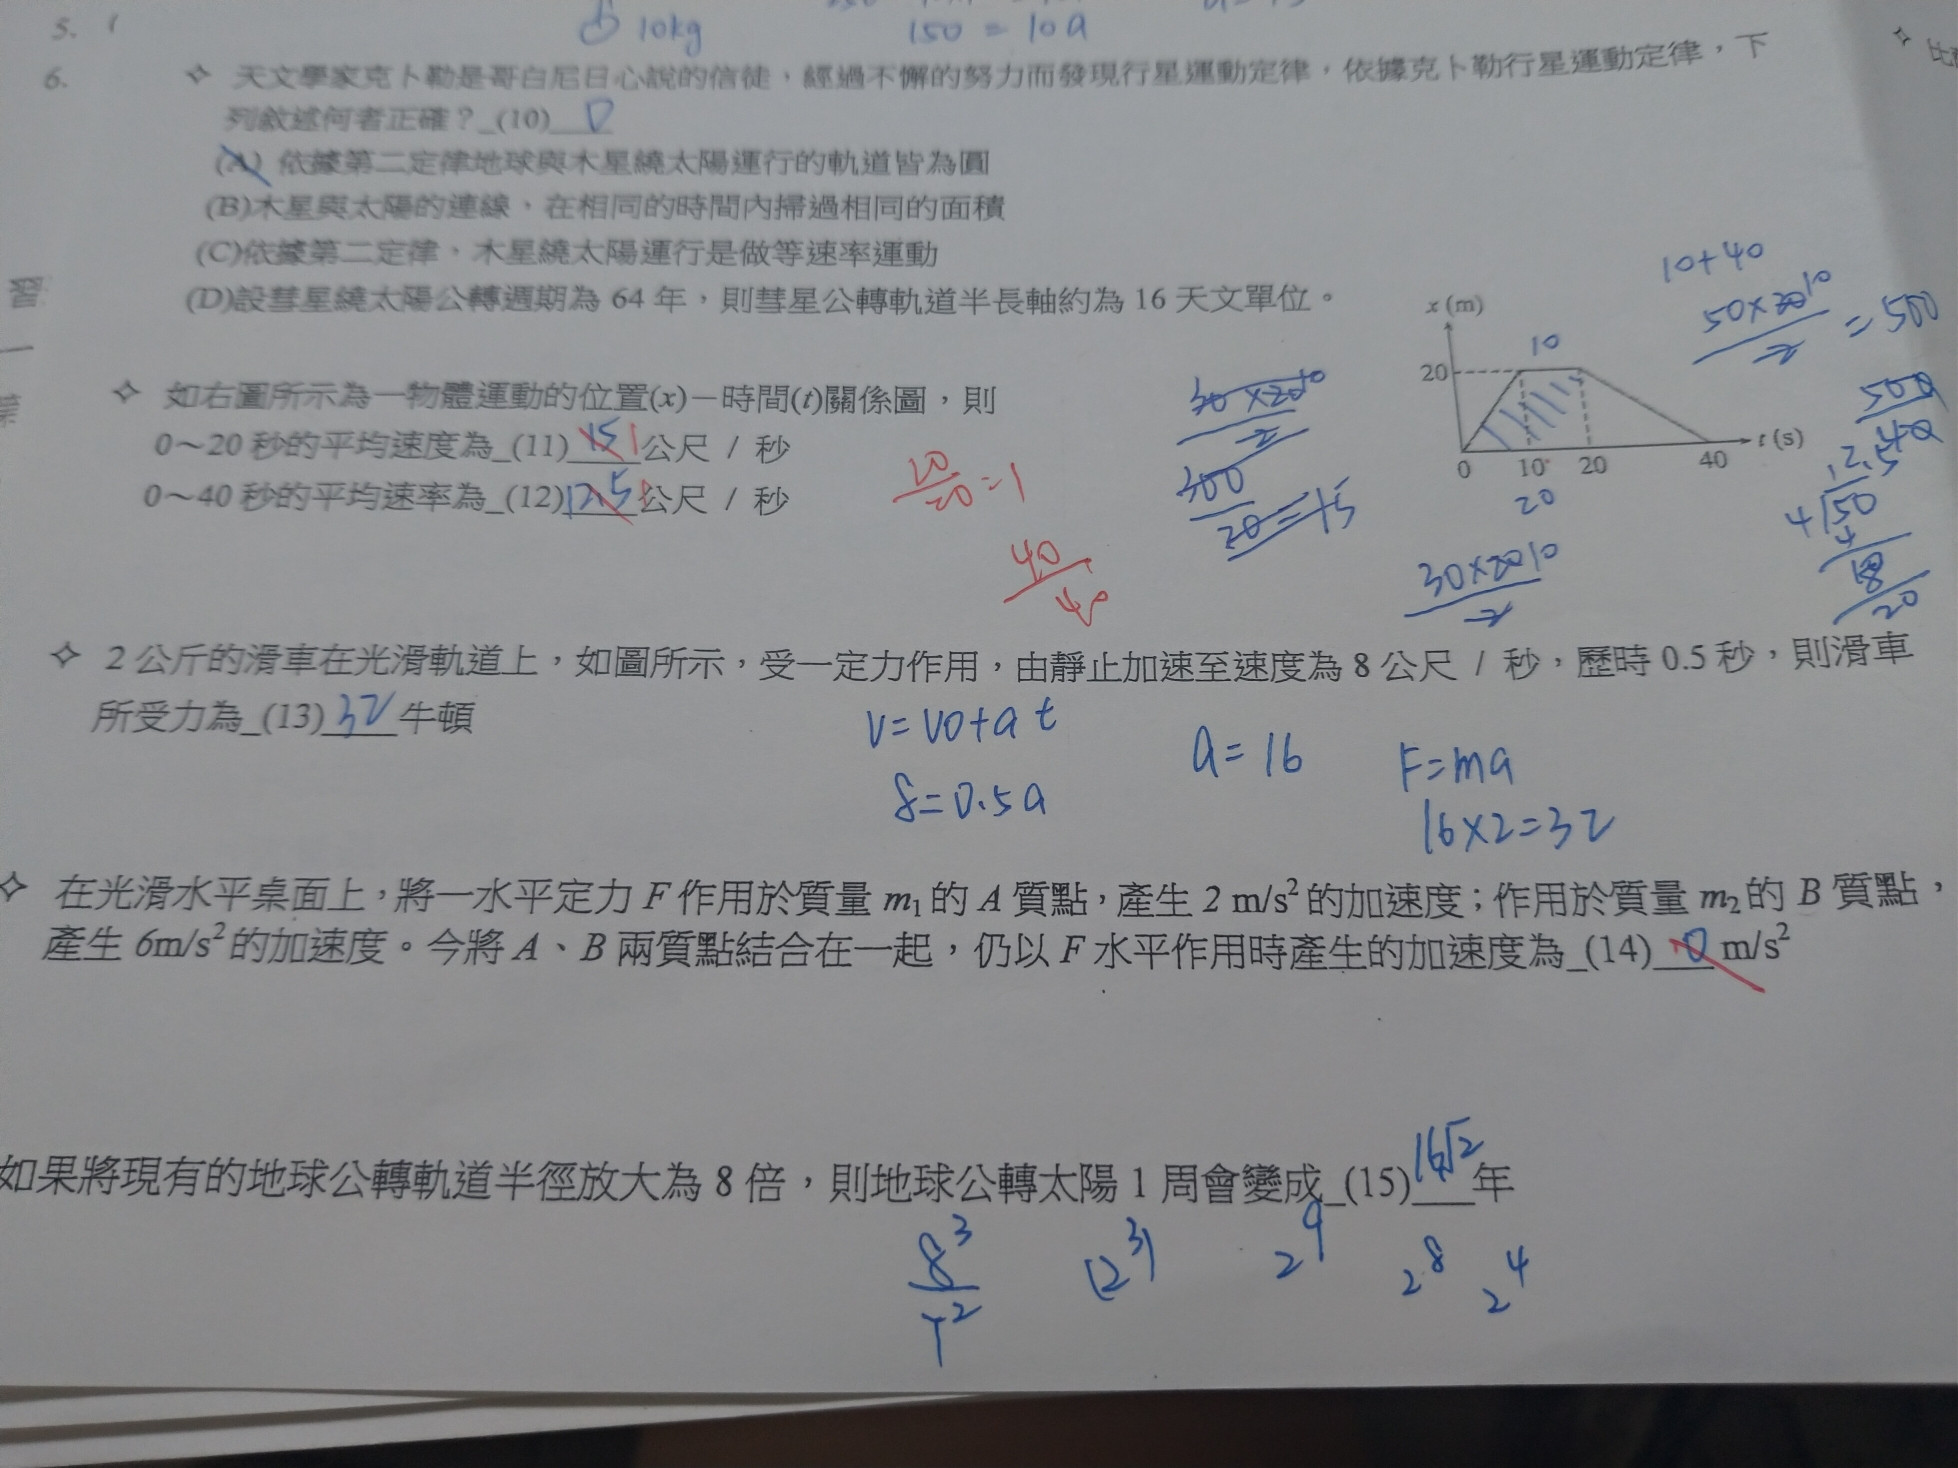 5.
10kg
150 = 10a
6. ✧ 天文學家克卜勒是哥白尼日心說的信徒，經過不懈的努力而發現行星運動定律，依據克卜勒行星運動定律，下
列敘述何者正確？_(10)_ D
(A) 依據第二定律地球與木星繞太陽運行的軌道皆為圓
(B)木星與太陽的連線，在相同的時間內掃過相同的面積
(C)依據第二定律，木星繞太陽運行是做等速率運動
(D)設彗星繞太陽公轉週期為 64 年，則彗星公轉軌道半長軸約為 16 天文單位。
習
一
10+40
50×20 10
2
= 500
x (m)
20
10
0 10 20 40 t (s)
20
✧ 如右圖所示為一物體運動的位置(x)－時間(t)關係圖，則
0～20 秒的平均速度為_(11)_ 15 1 公尺 / 秒
0～40 秒的平均速率為_(12)_ 12.5 公尺 / 秒
20
20 =1
40
40
30 ×20 10
2
300
20 =15
30×20 10
2
500
40
12.5
4√50
4
18
20
✧ 2 公斤的滑車在光滑軌道上，如圖所示，受一定力作用，由靜止加速至速度為 8 公尺 / 秒，歷時 0.5 秒，則滑車
所受力為_(13)_ 32 牛頓
V= V0+a t
8=0.5a
a= 16
F=ma
16×2=32
✧ 在光滑水平桌面上，將一水平定力 F 作用於質量 m₁ 的 A 質點，產生 2 m/s² 的加速度；作用於質量 m₂ 的 B 質點，
產生 6m/s² 的加速度。今將 A、B 兩質點結合在一起，仍以 F 水平作用時產生的加速度為_(14)_ 0 m/s²
如果將現有的地球公轉軌道半徑放大為 8 倍，則地球公轉太陽 1 周會變成_(15)_ 16√2 年
8³
T²
(2³)
2⁹
2⁸
2⁴